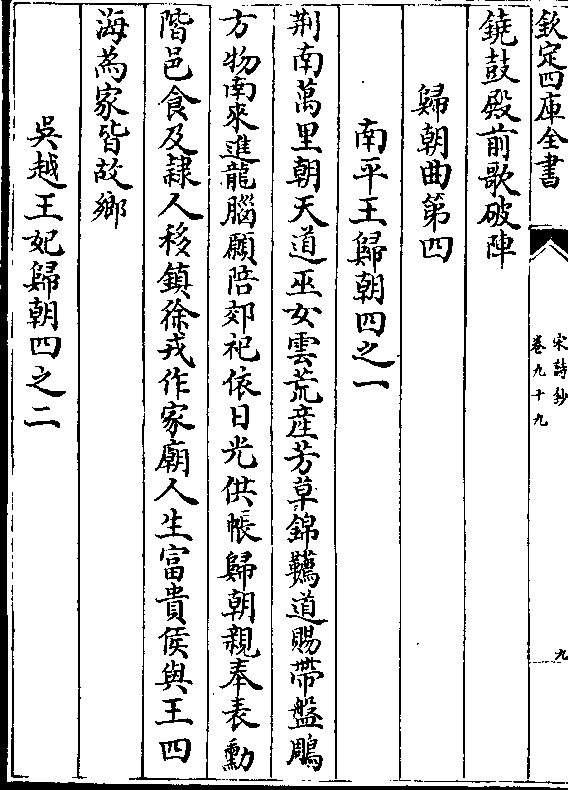 欽定四庫全書
宋詩鈔
卷九十九
九
鐃鼓殿前歌破陣
歸朝曲第四
南平王歸朝四之一
荆南萬里朝天道巫女雲荒産芳草錦韉道賜帶盤鵰
方物南來進龍腦願陪郊祀依日光供帳歸朝親奉表勳
階邑食及隷人移鎮徐戎作家廟人生富貴侯與王四
海為家皆故鄉
吳越王妃歸朝四之二